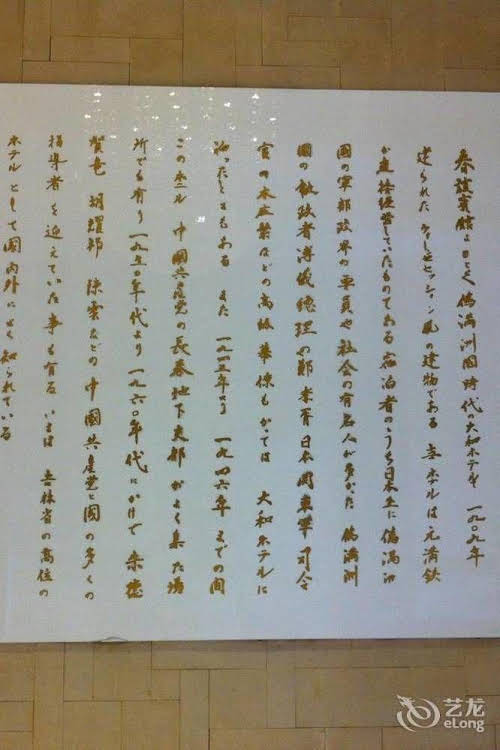 春誼賓館 よとく 偽満洲国時代の大和ホテル 一九〇九年
建られた セセッション風の建物である 当ホテルは元満鉄
が直接経営していたものである 宿泊者のうち日本並に偽満洲
国の軍部政界の要員や社会の有名人が多かた 偽満洲
国の執政者溥儀 総理の鄭孝胥 日本関東軍司令
官の本庄繁などの高級華僚もかつては 大和ホテルに
泊ったこともある また 一九四五年より 一九四六年までの間
このホテル 中國共産党の長春地下支部がよく集た場
所でも有り 一九五〇年代より一九六〇年代にかけて 朱德
賀竜 胡耀邦 陳雲などの中國共産党と國の多くの
指導者を迎えていた事も有る いまは 吉林省の高位の
ホテルとして國内外によく知られている
艺龙
eLong